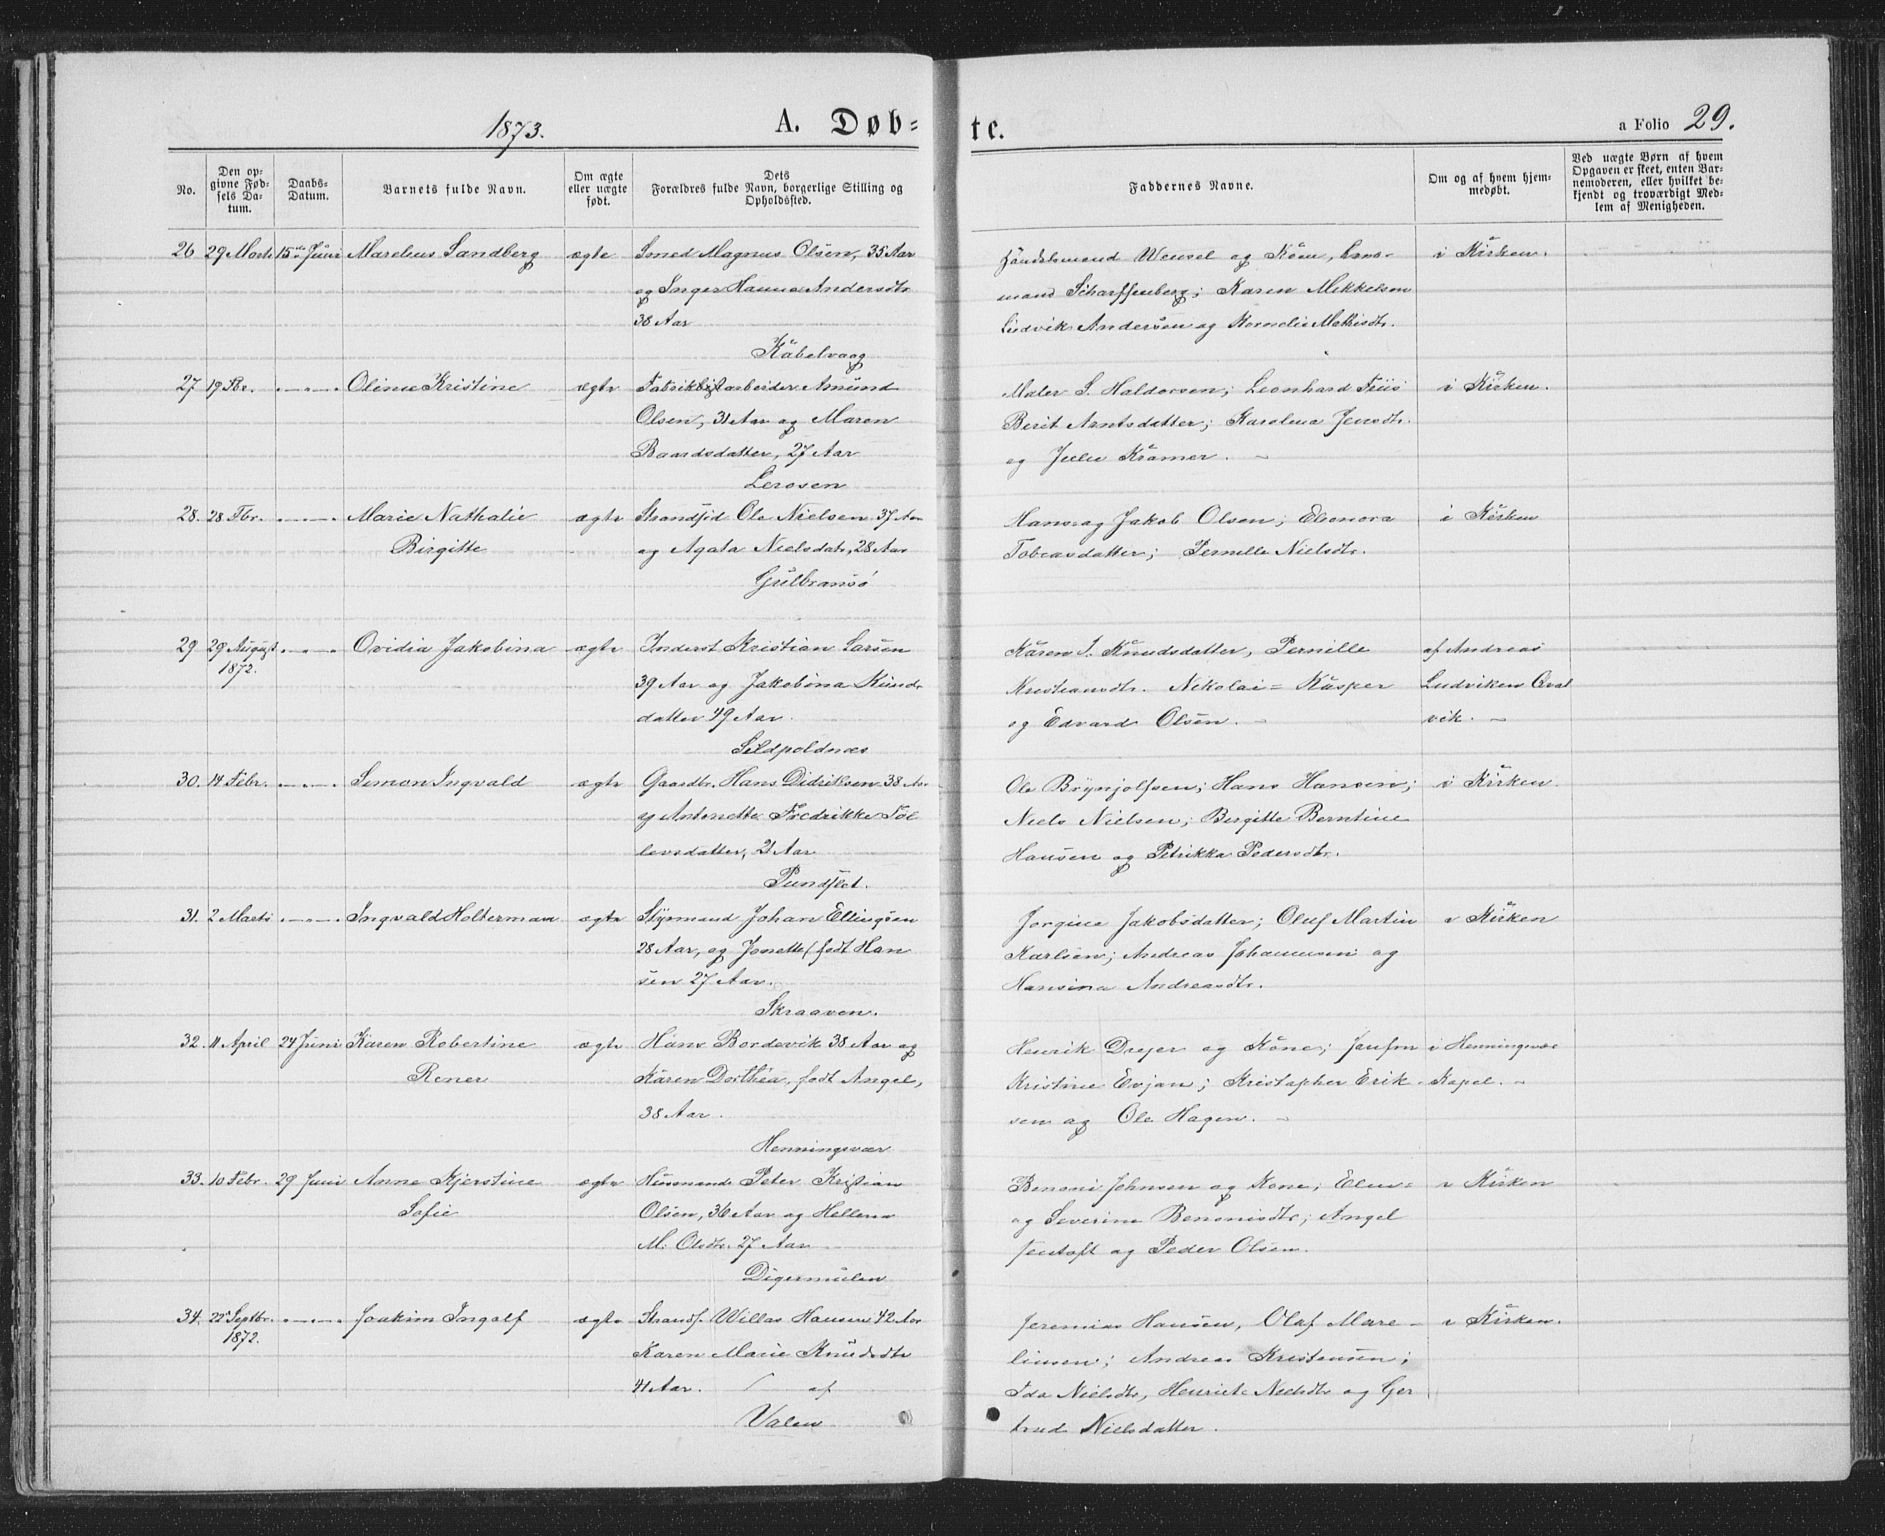 1873.
A. Døb=
te.
a Folio 29.
No.
Den op-
givne Fød-
sels Da-
tum.
Daabs-
Datum.
Barnets fulde Navn.
Om ægte
eller uægte
født.
Dets
Forældres fulde Navn, borgerlige Stilling og
Opholdssted.
Faddernes Navne.
Om og af hvem hjem-
medøbt.
Ved uægte Børn af hvem
Opgaven er skeet, enten Bar-
nemoderen, eller hvilket be-
kjendt og troværdigt Med-
lem af Menigheden.
26 29 Marts 15de Juni Marelius Sandberg ægte Smed Magnus Olsen, 35 Aar
og Inger Hanna Andersdtr
38 Aar
Kabelvaag
Handelsmand Wensel og Kone, Lens-
mand Scharffenberg; Karen Mikkelsen
Ludvik Andersen og Kornelie Mathisdtr.
i Kirken.
27 19 Fbr. Oline Kristine ægte arbeider Amund
Olsen, 31 Aar og Maren
Baardsdatter, 27 Aar
Lerosen
Maler S. Haldorsen; Leonhard Friis
Berit Arntsdatter; Karolina Jensdtr.
og Julie Kramer.
i Kirken.
28. 28 Fbr. Marie Nathalie
Birgitte
ægte Strandsid Ole Nielsen 37 Aar
og Agata Nielsdatr, 28 Aar
Gulbransø
Hans og Jakob Olsen; Elenora
Tobiasdatter; Pernille Nielsdtr.
i Kirken
29 29 August
1872.
Ovidia Jakobina ægte Inderst Kristian Larsen
39 Aar og Jakobina Knuds
datter 49 Aar.
Sildpoldnes
Karen J. Knudsdatter, Pernille
Kristiansdtr. Nikolai= Kasper
og Edvard Olsen.
af Andreas
Ludviksen Qval
vik.
30. 14 Febr. Simon Ingvald ægte Gaardbr. Hans Didriksen 38 Aar
og Antonette Fredrikke Tol
levsdatter, 21 Aar
Pundslet.
Ole Brynjolfsen; Hans Hansen;
Niels Nielsen; Birgitte Berntine
Hansen og Petrikka Pedersdtr.
i Kirken.
31. 2 Marts Ingvald Holterman ægte Styrmand Johan Ellingsen
28 Aar, og Jonette født Han
sen 27 Aar.
Skraaven.
Jorgine Jakobsdatter; Oluf Martin
Karlsen; Andreas Johannesen og
Hansina Andreasdtr.
i Kirken
32. 11 April 24 Juni Karen Robertine
Rener
ægte Hans Bordevik 38 Aar og
Karen Dorthea, født Angel,
38 Aar.
Henningsvær
Henrik Dreyer og Kone; Jomfru
Kristine Evjan; Kristopher Erik-
sen og Ole Hagen.
i Henningsvær
Kapel.
33. 10 Febr. 29 Juni Anne Kjerstine
Sofie
ægte Husmand Peter Kristian
Olsen, 36 Aar og Hellena
M. Olsdtr. 27 Aar
Digermulen
Benoni Johnsen og Kone; Elen=
og Severine Benonisdtr; Angel
Jentoft og Peder Olsen.
i Kirken
34. 22 Septbr.
1872.
Joakim Ingolf ægte Strands. Willas Hansen 42 Aar
Karen Marie Knudsdtr
41 Aar. af
Valen
Jeremias Hansen, Olaf Mare-
liusen; Andreas Kristensen;
Ida Nielsdtr, Henrikke Nielsdtr og Ger
trud Nielsdatter.
i Kirken.